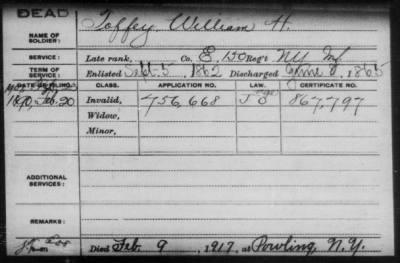 DEAD
NAME OF SOLDIER: Toffey, William H.
SERVICE: Late rank, Co. E, 150 Reg't NY Inf.
TERM OF SERVICE: Enlisted Sept. 5, 1862 Discharged June 8, 1865
DATE OF FILING. CLASS. APPLICATION NO. LAW. CERTIFICATE NO.
1890, Feb. 20 Invalid, 756,668 J 867,797
Widow,
Minor,
ADDITIONAL SERVICES:
REMARKS:
Died Feb. 9, 1917, at Pawling, N.Y.